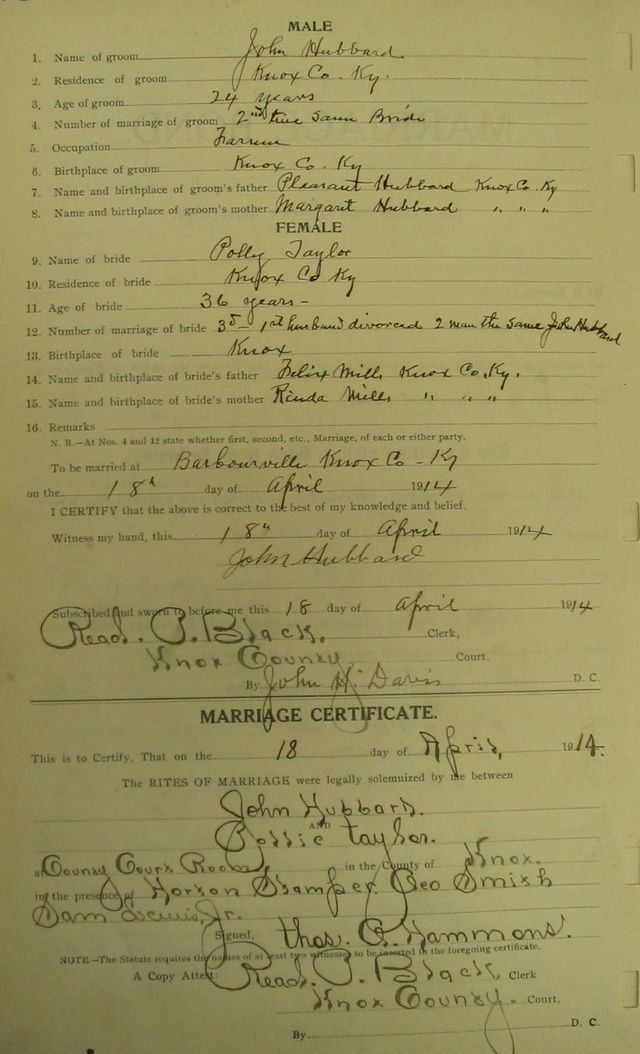 MALE
1. Name of groom John Hubbard
2. Residence of groom Knox Co. Ky.
3. Age of groom 24 years
4. Number of marriage of groom 2nd time same Bride
5. Occupation Farmer
6. Birthplace of groom Knox Co. Ky
7. Name and birthplace of groom's father Pleasant Hubbard Knox Co. Ky
8. Name and birthplace of groom's mother Margaret Hubbard " " "
FEMALE
9. Name of bride Polly Taylor
10. Residence of bride Knox Co Ky
11. Age of bride 36 years -
12. Number of marriage of bride 3d - 1st husband divorced 2 man the same John Hubbard
13. Birthplace of bride Knox
14. Name and birthplace of bride's father Felix Mills Knox Co. Ky.
15. Name and birthplace of bride's mother Rinda Mills " " "
16. Remarks
N. B.—At Nos. 4 and 12 state whether first, second, etc., Marriage, of each or either party.
To be married at Barbourville Knox Co - Ky
on the 18th day of April 1914
I CERTIFY that the above is correct to the best of my knowledge and belief.
Witness my hand, this 18th day of April 1914
John Hubbard
Subscribed and sworn to before me this 18 day of April 1914
Read. P. Black. Clerk,
Knox County Court.
By John H. Davis D. C.
MARRIAGE CERTIFICATE.
This is to Certify, That on the 18 day of April, 1914.
The RITES OF MARRIAGE were legally solemnized by me between
John Hubbard.
AND
Pollie Taylor.
a County Court Room, in the County of Knox.
in the presence of Horton Stamper Geo Smith
Sam Jr.
Signed, Thos. G. Hammons.
NOTE—The Statute requires the names of at least two witnesses to be inserted in the foregoing certificate.
A Copy Attest: Read. P. Black Clerk
Knox County. Court.
By D. C.